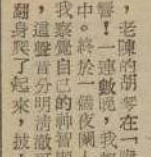 ，老陳的胡琴在「
響！一連數晚，我
中。終於一個夜闌人
我察覺自己的神智
，這聲音分明清澈可
翻身爬了起來，披